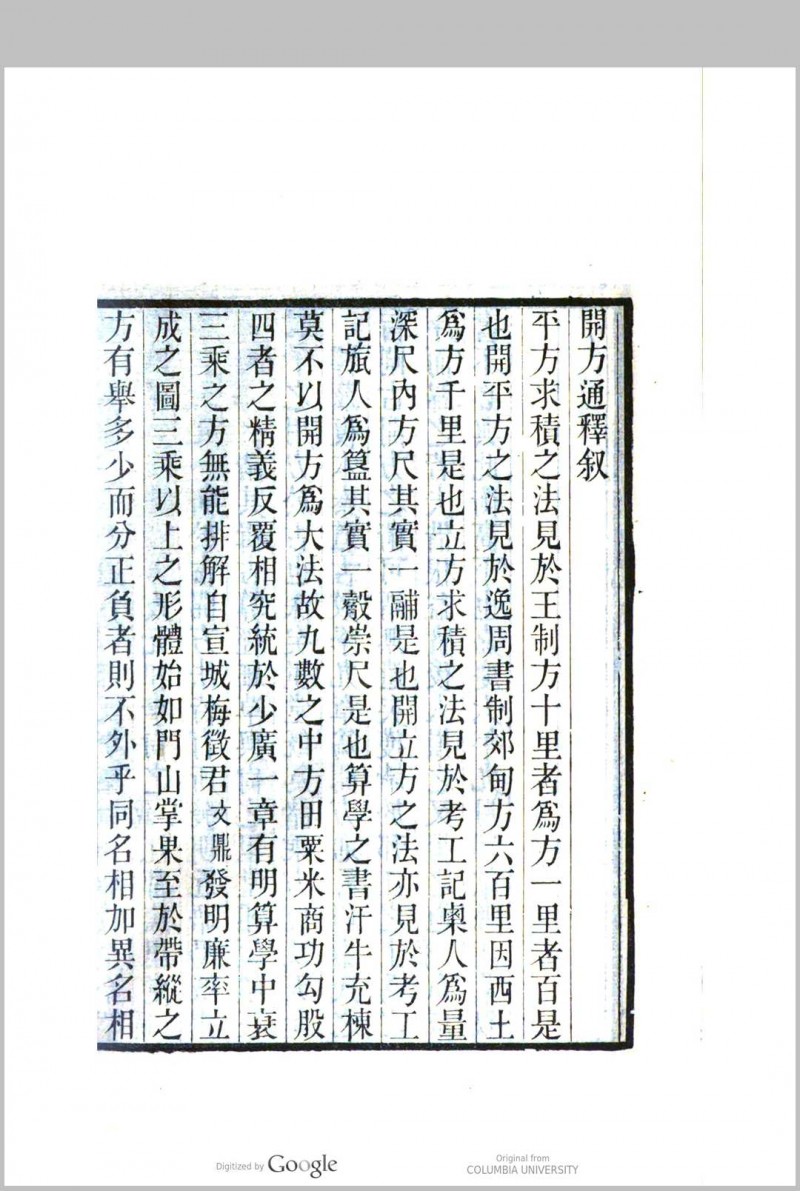 開方通釋叙
平方求積之法見於王制方十里者爲方一里者百是
也開平方之法見於逸周書制郊甸方六百里因西土
爲方千里是也立方求積之法見於考工記㮚人爲量
深尺內方尺其實一鬴是也開立方之法亦見於考工
記旊人爲簋其實一觳崇尺是也算學之書汗牛充棟
莫不以開方爲大法故九數之中方田粟米商功勾股
四者之精義反覆相究統於少廣一章有明算學中衰
三乘之方無能排解自宣城梅徵君文鼎發明廉率立
成之圖三乘以上之形體始如門山掌果至於帶縱之
方有舉多少而分正負者則不外乎同名相加異名相
Digitized by Google
Original from
COLUMBIA UNIVERSITY